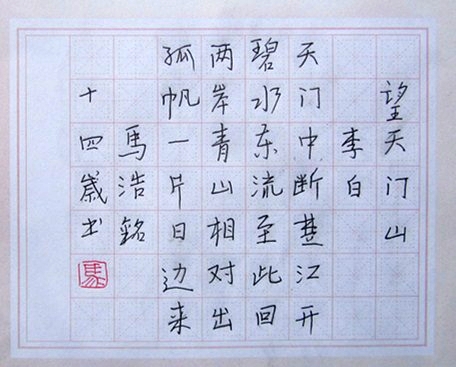 望天门山
李白
天门中断楚江开
碧水东流至此回
两岸青山相对出
孤帆一片日边来
馬浩銘
十四歲书
馬